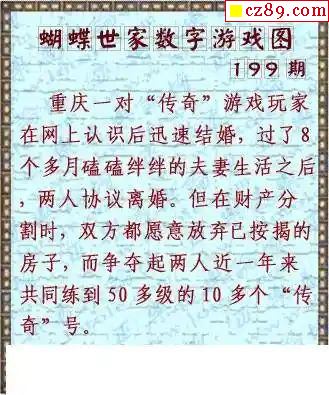 cz89.com
蝴蝶世家数字游戏图
199期
重庆一对“传奇”游戏玩家
在网上认识后迅速结婚，过了8
个多月磕磕绊绊的夫妻生活之后
，两人协议离婚。但在财产分
割时，双方都愿意放弃已按揭的
房子，而争夺起两人近一年来
共同练到50多级的10多个“传
奇”号。